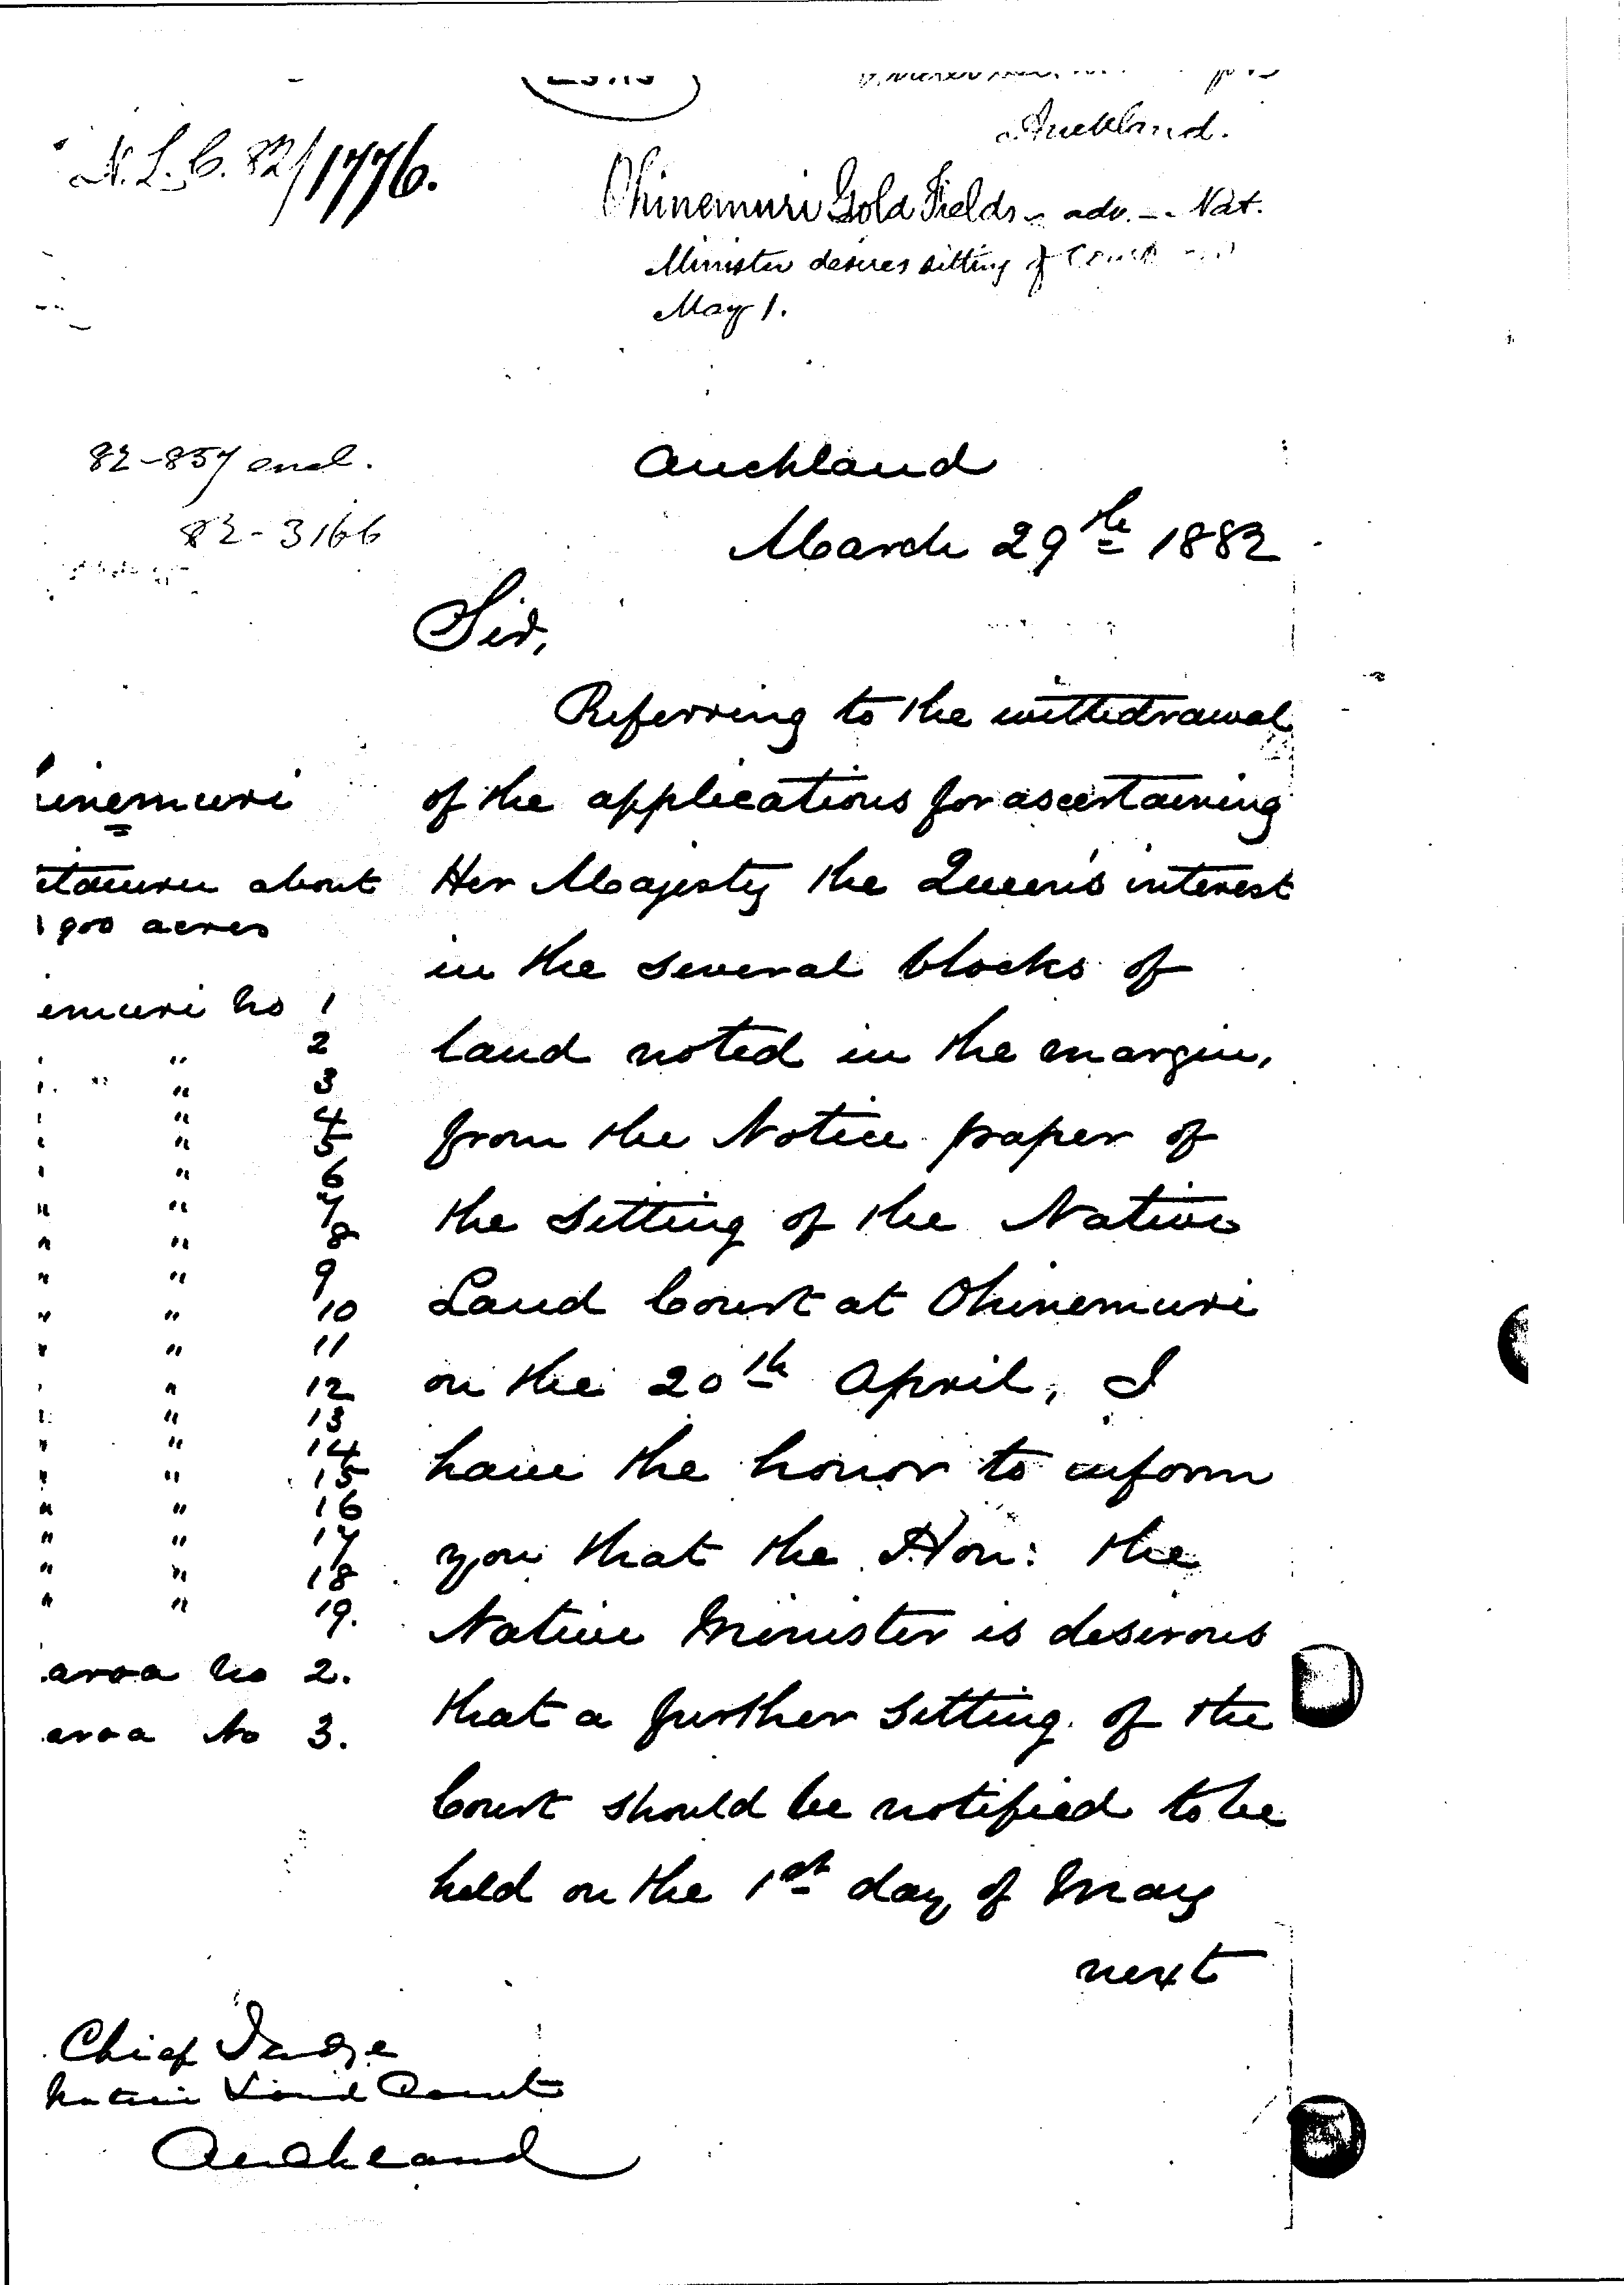 Auckland.
N.L.C. 82/1776.
Ohinemuri Gold Fields - adv. - Nat.
Minister desires sitting of Court
May 1.
82-857 encl.
82-3166
Auckland
March 29th 1882
Sir,
Referring to the withdrawal
of the applications for ascertaining
Her Majesty the Queen's interest
in the several blocks of
land noted in the margin,
from the Notice paper of
the sitting of the Native
Land Court at Ohinemuri
on the 20th April, I
have the honor to inform
you that the Hon: the
Native Minister is desirous
that a further sitting of the
Court should be notified to be
held on the 1st day of May
next
inemuri
about
1900 acres
emuri No 1
" 2
" 3
" 4
" 5
" 6
" " 7
" " 8
" " 9
" " 10
" " 11
" 12
" 13
" " 14
" " 15
" " 16
" " 17
" " 18
" " 19.
aroa No 2.
aroa No 3.
Chief Judge
Native Land Court
Auckland